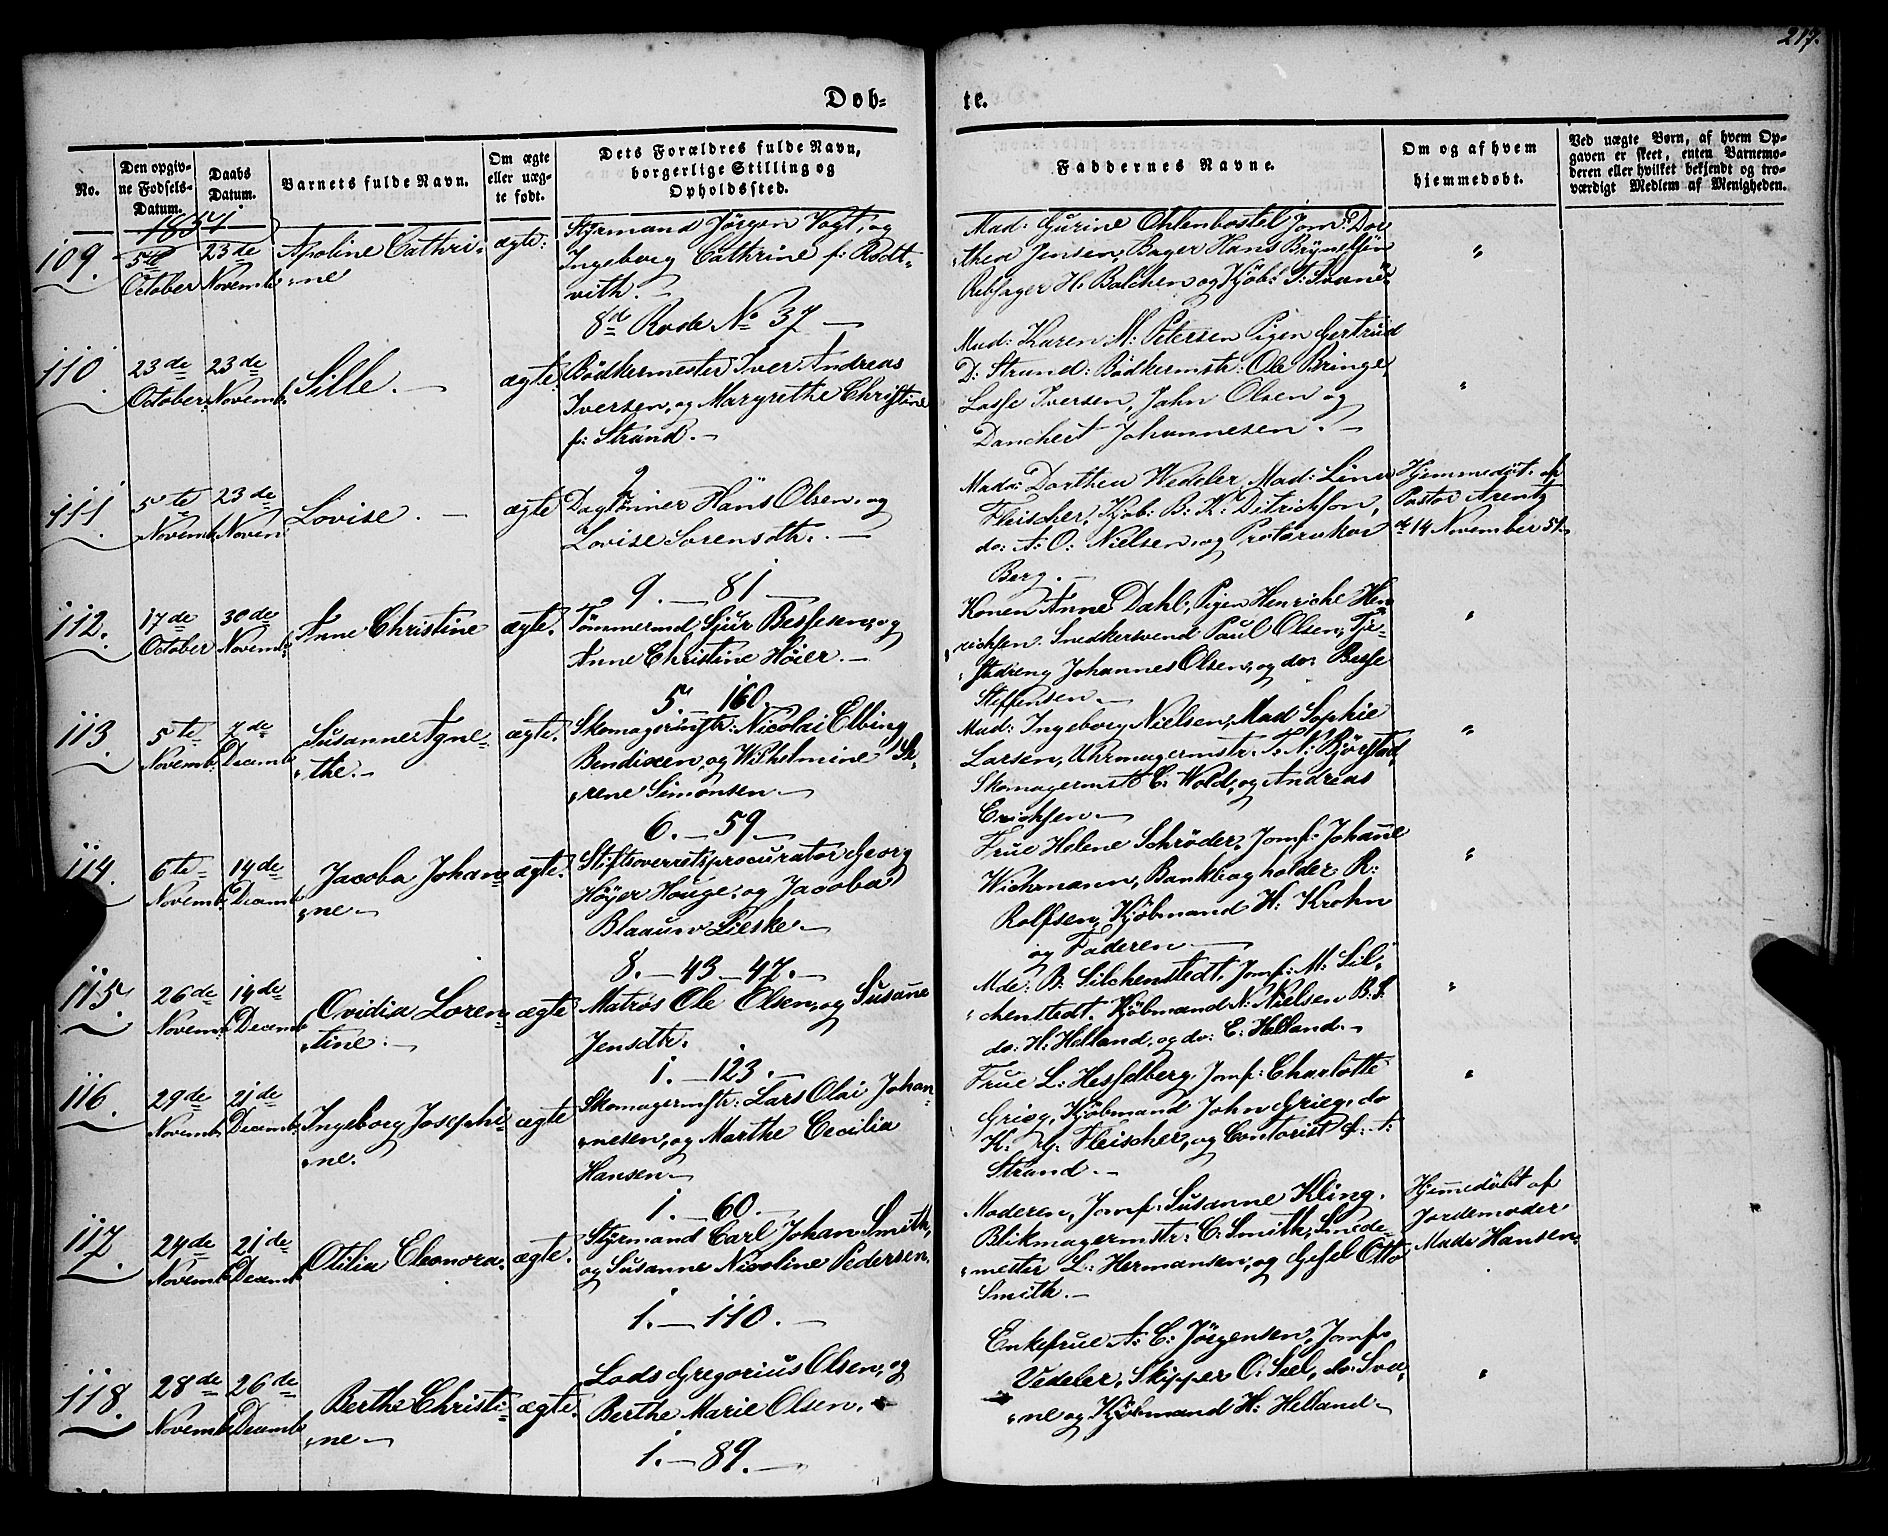 217.
Døb= te.
No.
Den opgiv-
ne Fødsels-
Datum.
Daabs
Datum.
Barnets fulde Navn.
Om ægte
eller uæg-
te født.
Dets Forældres fulde Navn,
borgerlige Stilling og
Opholdssted.
Faddernes Navne.
Om og af hvem
hjemmedøbt.
Ved uægte Børn, af hvem Op-
gaven er skeet, enten Barnemo-
deren eller hvilket bekjendt og tro-
værdigt Medlem af Menigheden.
1854
109.
5te
October
23de
Novemb:
Apoline Cathri-
ne
ægte:
Styrmand Jörgen Vogt, og
Ingeborg Cathrine f: Rödt-
vith.
8de Rode No 37
Mad: Gurine Ohlenbostel Jomf: Dor
thea Jensen, Bager Hans Brynelsen
Rebslager H. Balchen og Kjöb:
"
110.
23de
October
23de
Novemb:
Sille.
ægte:
Bödkermester Iver Andreas
Iversen, og Margrethe Christine
f: Strand.
Mad: Karen M: Petersen Pigen Gertrud
D: Strand: Bödkermstr: Ole Bringe,
Lasse Iversen, John Olsen og
Danchert Johannesen.
"
111.
5te
Novemb:
23de
Novem:
Lovise.
ægte
Daglönner Hans Olsen, og
Lovise Sörensdtr.
9. 81
Mad: Dorthea Wedeler, Mad: Line
Fleischer, Kjöb: B: K: Ditrichson,
do: A: O: Nielsen og Protarvkar
Berg.
Hjemmedöbt af
Pastor Arentz
d: 14 November 54.
112.
17de
October
30de
Novemb:
Anne Christine
ægte.
Tömmermd Sjur Bessesen, og
Anne Christine Höier.
5. 160.
Konen Anne Dahl, Pigen Henriche Hen
richsen. Snedkersvend Paul Olsen, Tje-
stedreng Johannes Olsen, og do: Besse
Steffensen.
"
113.
5te
Novemb:
7de
Decemb:
Susanne Agne-
the.
ægte.
Skomagermstr: Nicolai Elbing
Bendixen, og Wilhelmine Se-
rene Simonsen
6. 59
Mad: Ingeborg Nielsen, Mad Sophie
Larsen, Uhrmagermstr. T: N: Björstad,
Skomagermstr C: Wold, og Andreas
Erichsen.
"
114.
6te
Novemb:
14de
Decemb:
Jacoba Johan-
ne
ægte.
Stiftsoverretsprocurator Georg
Höyer Houge, og Jacoba
Blaauw Lieske.
8. 43 47.
Frue Helene Schröder, Jomf: Johanne
Wiehrmann, Bankbogholder R:
Rolfsen, Kjöbmand H: Krohn
og Faderen
"
115.
26de
Novemb:
14de
Decemb:
Ovidia Loren-
tine.
ægte
Matros Ole Olsen, og Susanne
Jensdtr.
1. 123.
Mde: B: Silchenstedt, Jomf: M: Sil-
chenstedt, Kjöbmand N: Nielsen B: S:
do: H: Helland, og do: E: Helland.
"
116.
29de
Novemb:
21de
Decemb:
Ingeborg Josephi-
ne.
ægte
Skomagermstr: Lars Olai Johan-
nesen, og Marthe Cecilia
Hansen.
1. 60.
Frue L: Hesselberg, Jomf: Charlotte
Grieg, Kjöbmand John Grieg, do
K: G: Fleischer, og Contorist f: A:
Strand.
"
117.
24de
Novemb:
21de
Decemb:
Otilia Eleonora.
ægte.
Styrmand Carl Johan Smith,
og Susanne Nicoline Pedersen,
1. 110.
Moderen, Jomf: Susanne Kling.
Blikmagermstr: C: Smith, Smede-
mester L: Hermansen, og Gesel Otto
Smith.
Hjemmedöbt af
Jordemoder
Mada Hansen.
118.
28de
Novemb:
26de
Decemb:
Berthe Christi-
ne
ægte.
Lods Gregorius Olsen, og
Berthe Marie Olsen.
1. 89.
Enkefrue A: C: Jörgensen, Jomf
Vedeler, Skipper O: Seel, do: Sva-
ne og Kjöbmand H: Helland
"